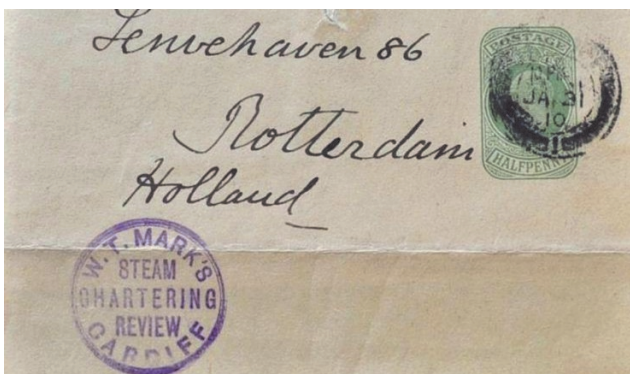 Leuvehaven 86
Rotterdam
Holland
POSTAGE
JA 31
10
HALFPENNY
W. T. MARK'S
STEAM
CHARTERING
REVIEW
CARDIFF